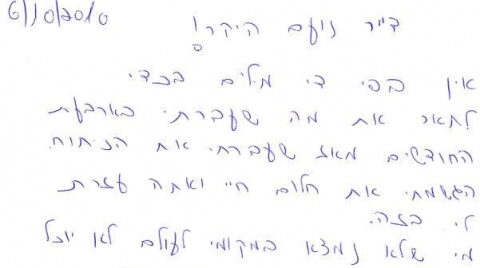 6/10/2010
ד״ר נועם היקר!
אין בפי די מילים בכדי
לתאר את מה שעברתי בארבעת
החודשים מאז שעברתי את הניתוח.
הגשמתי את חלום חיי ואתה עזרת
לי בזה.
מי שלא נמצא במקומי לעולם לא יוכל